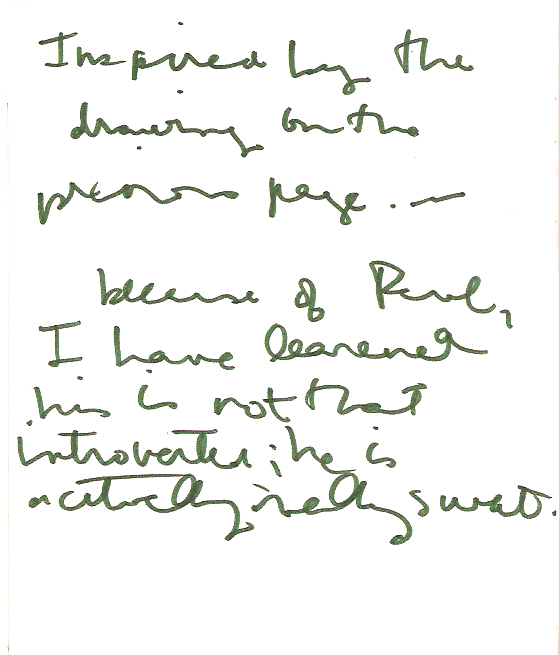 Inspired by the
drawing on the
previous page. —
because of Raul,
I have learened
his is not that
introverted; he is
actually, really sweet.